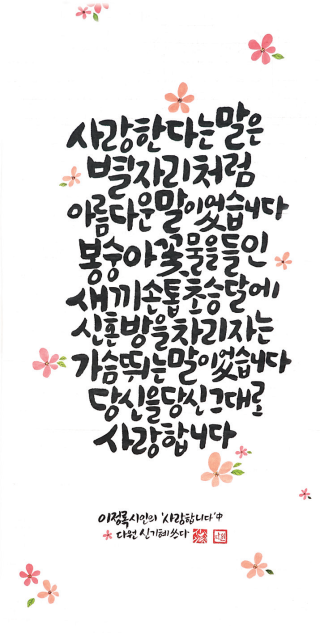 사랑한다는 말은
별자리처럼
아름다운 말이었습니다
봉숭아 꽃물을 들인
새끼손톱 초승달에
신혼방을 차리자는
가슴 뛰는 말이었습니다
당신을 당신 그대로
사랑합니다
이정록 시인의 '사랑합니다' 中
다원 신기혜 쓰다